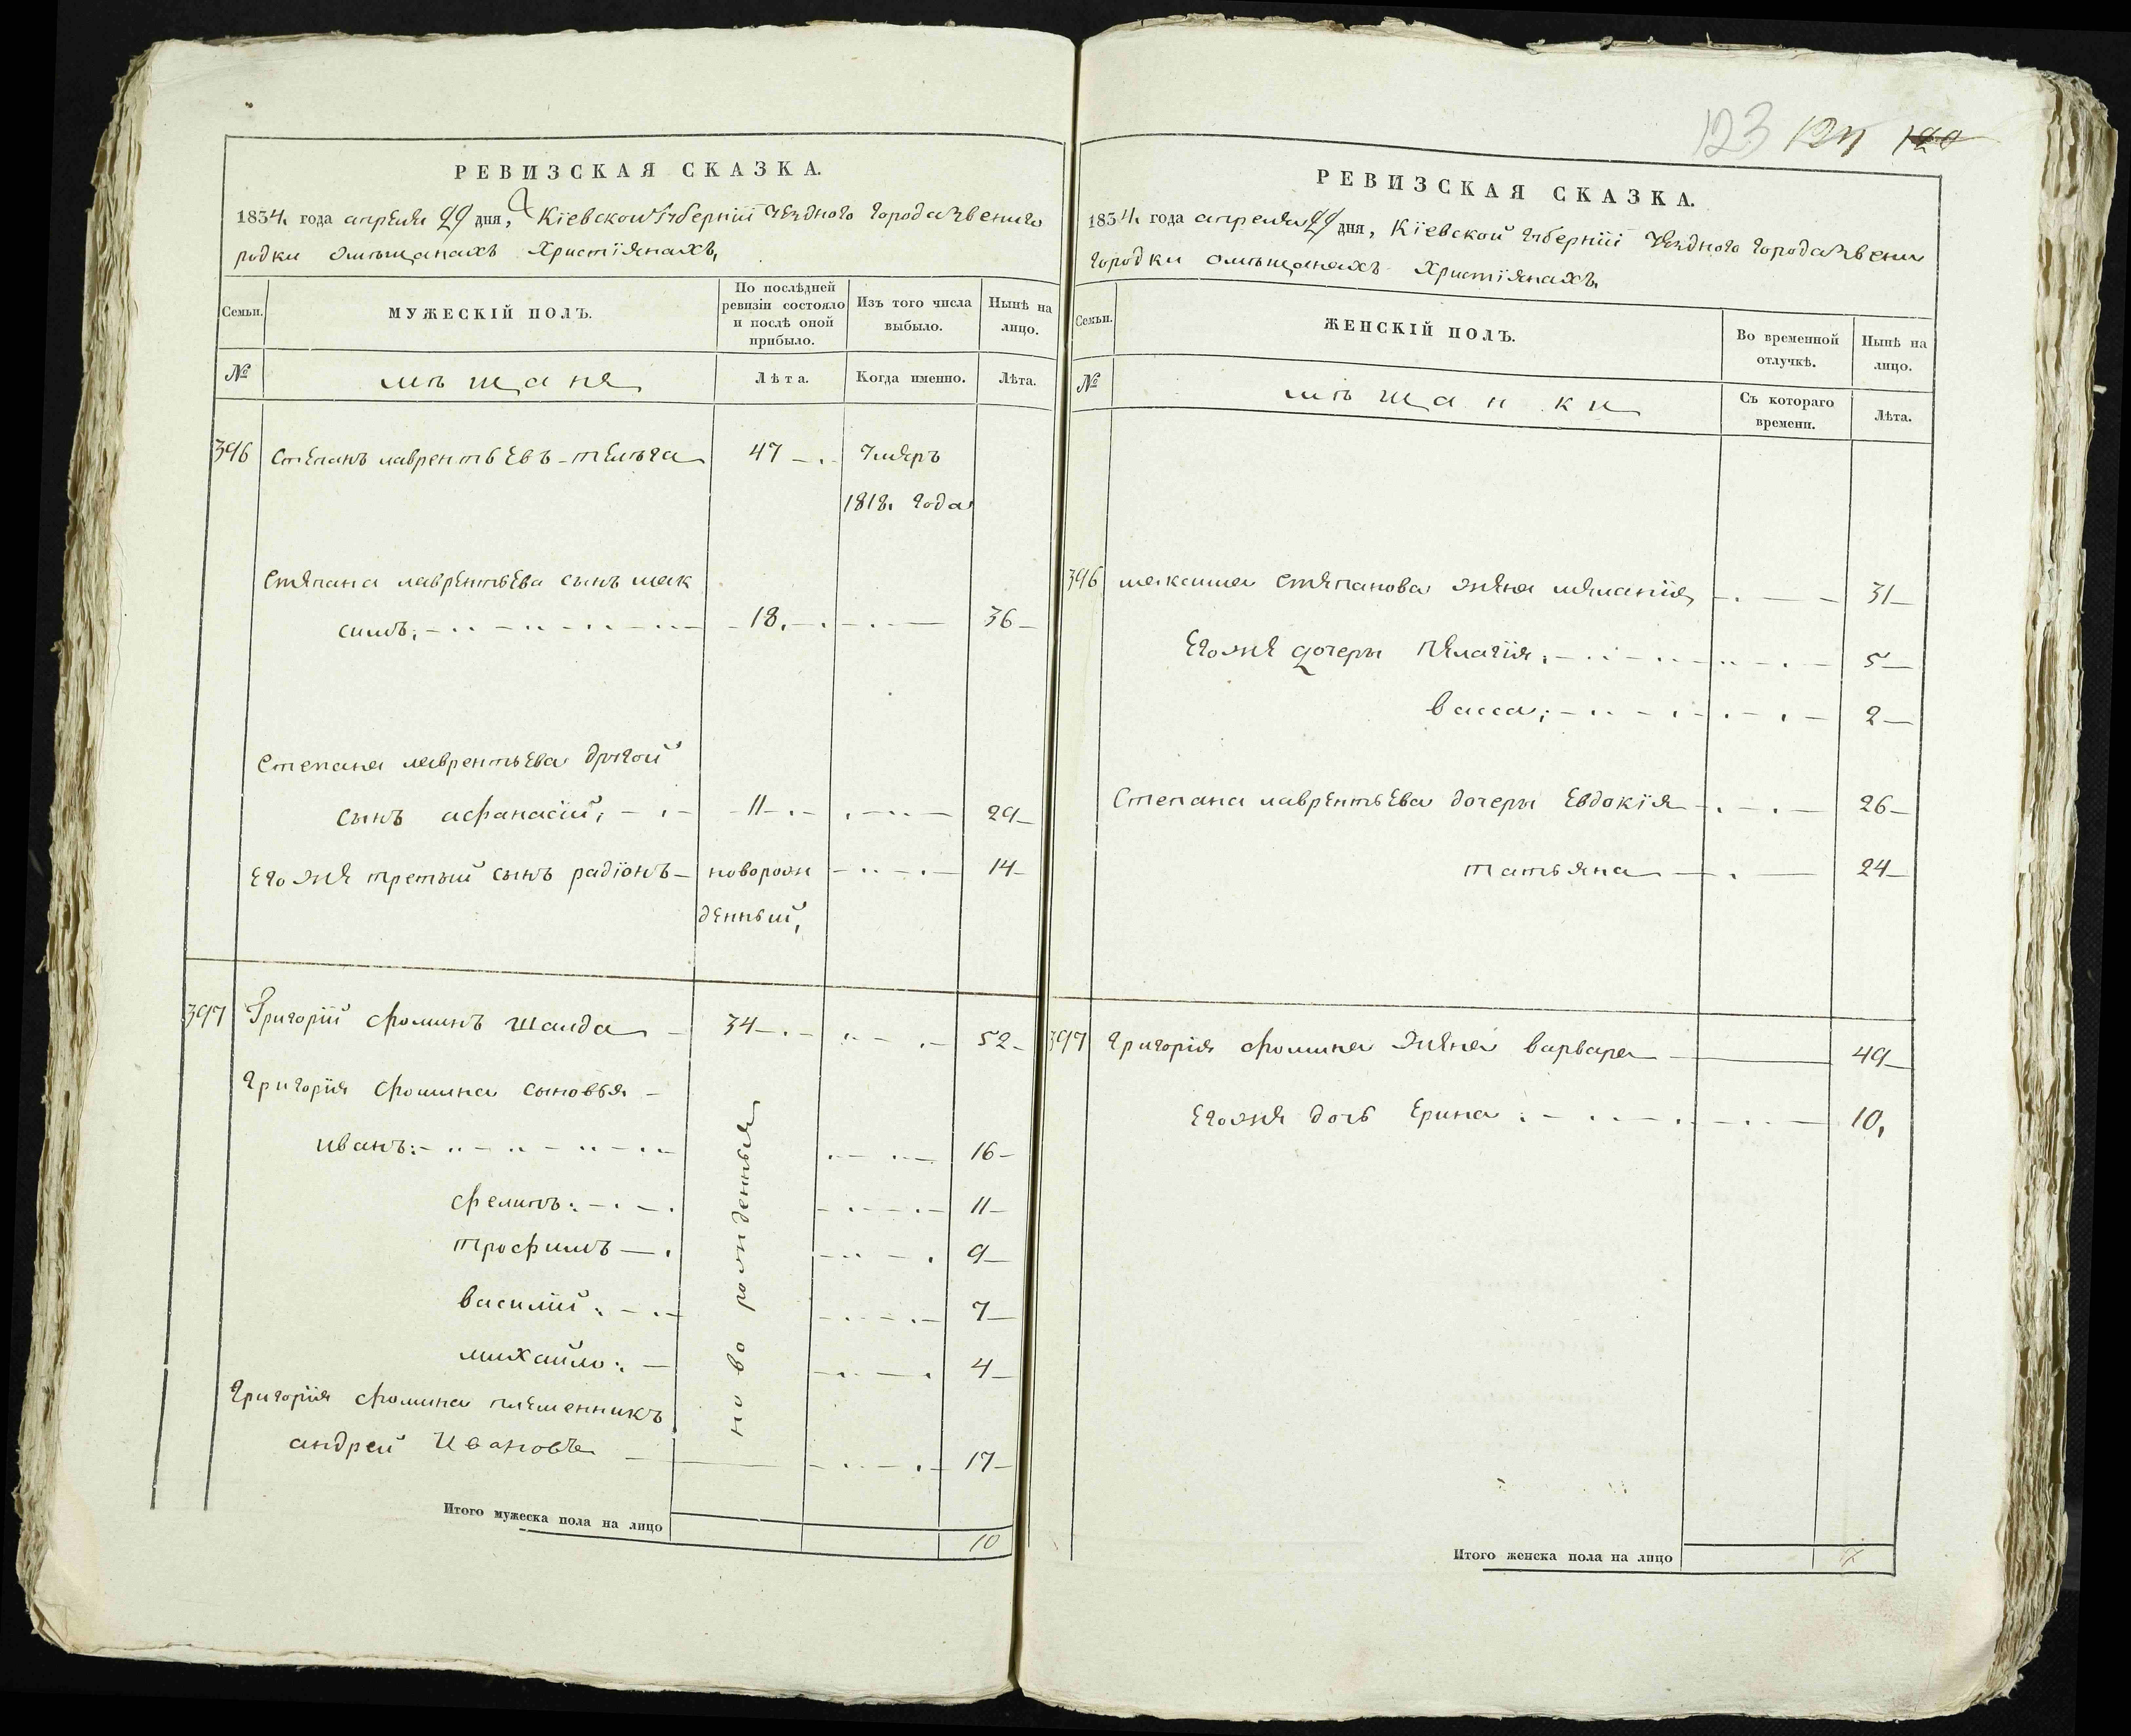 РЕВИЗСКАЯ СКАЗКА.
1834 года апреля 29 дня, Кіевской губерніи уезднаго города Звениго
родки омѣщанахъ Христіянахъ,
Семьи.
МУЖЕСКІЙ ПОЛЪ.
По послѣдней ревизіи состояло и послѣ оной прибыло.
Изъ того числа выбыло.
Нынѣ на лицо.
№
мѣщаня
Лѣта.
Когда именно.
Лѣта.
396 Степанъ лаврентьевъ 47 Умеръ
1818. года
Степана лаврентьева сынъ мак
симъ: 18. 36
Степана лаврентьева другой
сынъ афанасій, 11 29
Егоже третый сынъ радіонъ новорож 14
денный,
397 Григорій фоминъ Шаида 34 52
Григорія фомина сыновья
иванъ: 16
филипъ: 11
трофимъ 9
василій: 7
михайло: 4
ново рожденныя
Григорія фомина племенникъ
андрей Ивановъ 17
Итого мужеска пола на лицо 10
123 124 120
РЕВИЗСКАЯ СКАЗКА.
1834 года апреля 29 дня, Кіевской губерніи Уезднаго города Звени
городки омѣщанахъ Христіянахъ,
Семьи.
ЖЕНСКІЙ ПОЛЪ.
Во временной отлучкѣ.
Нынѣ на лицо.
№
мѣщанки
Съ котораго времени.
Лѣта.
396 максима степанова жена меланія, 31
Егоже дочеры пелагія: 5
васса: 2
Степана лаврентьева дочеры Евдокія 26
татьяна 24
397 Григорія фомина жена варвара 49
Егоже дочь Ерина: 10,
Итого женска пола на лицо 7